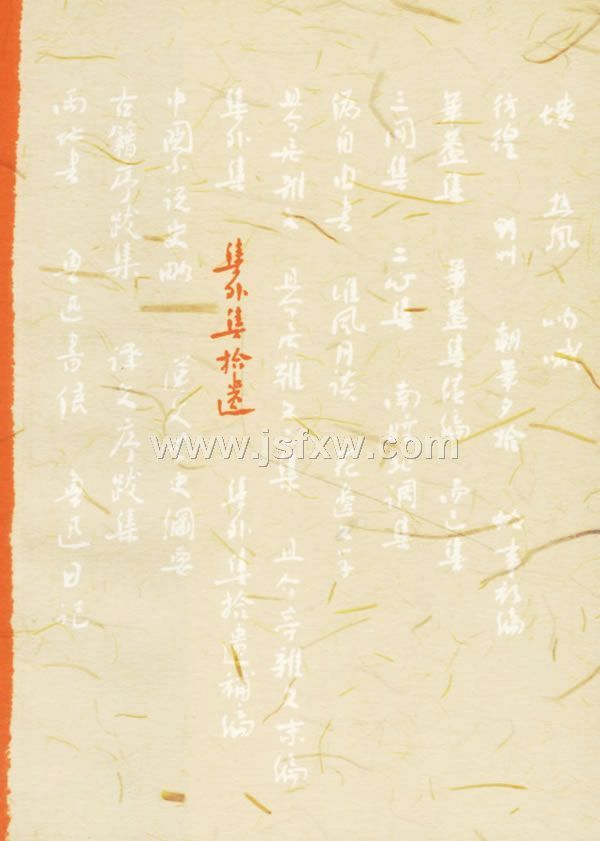 坟 热风 呐喊
彷徨 野草 朝华夕拾 故事新编
华盖集 华盖集续编 而已集
三闲集 二心集 南腔北调集
伪自由书 准风月谈 花边文学
且介亭杂文 且介亭杂文二集 且介亭雜文末编
集外集 集外集拾遗 集外集拾遗補编
中国小说史略 漢文 史綱要
古籍序跋集 译文序跋集
两地书 鲁迅書信 鲁迅日记
www.jsfxw.com